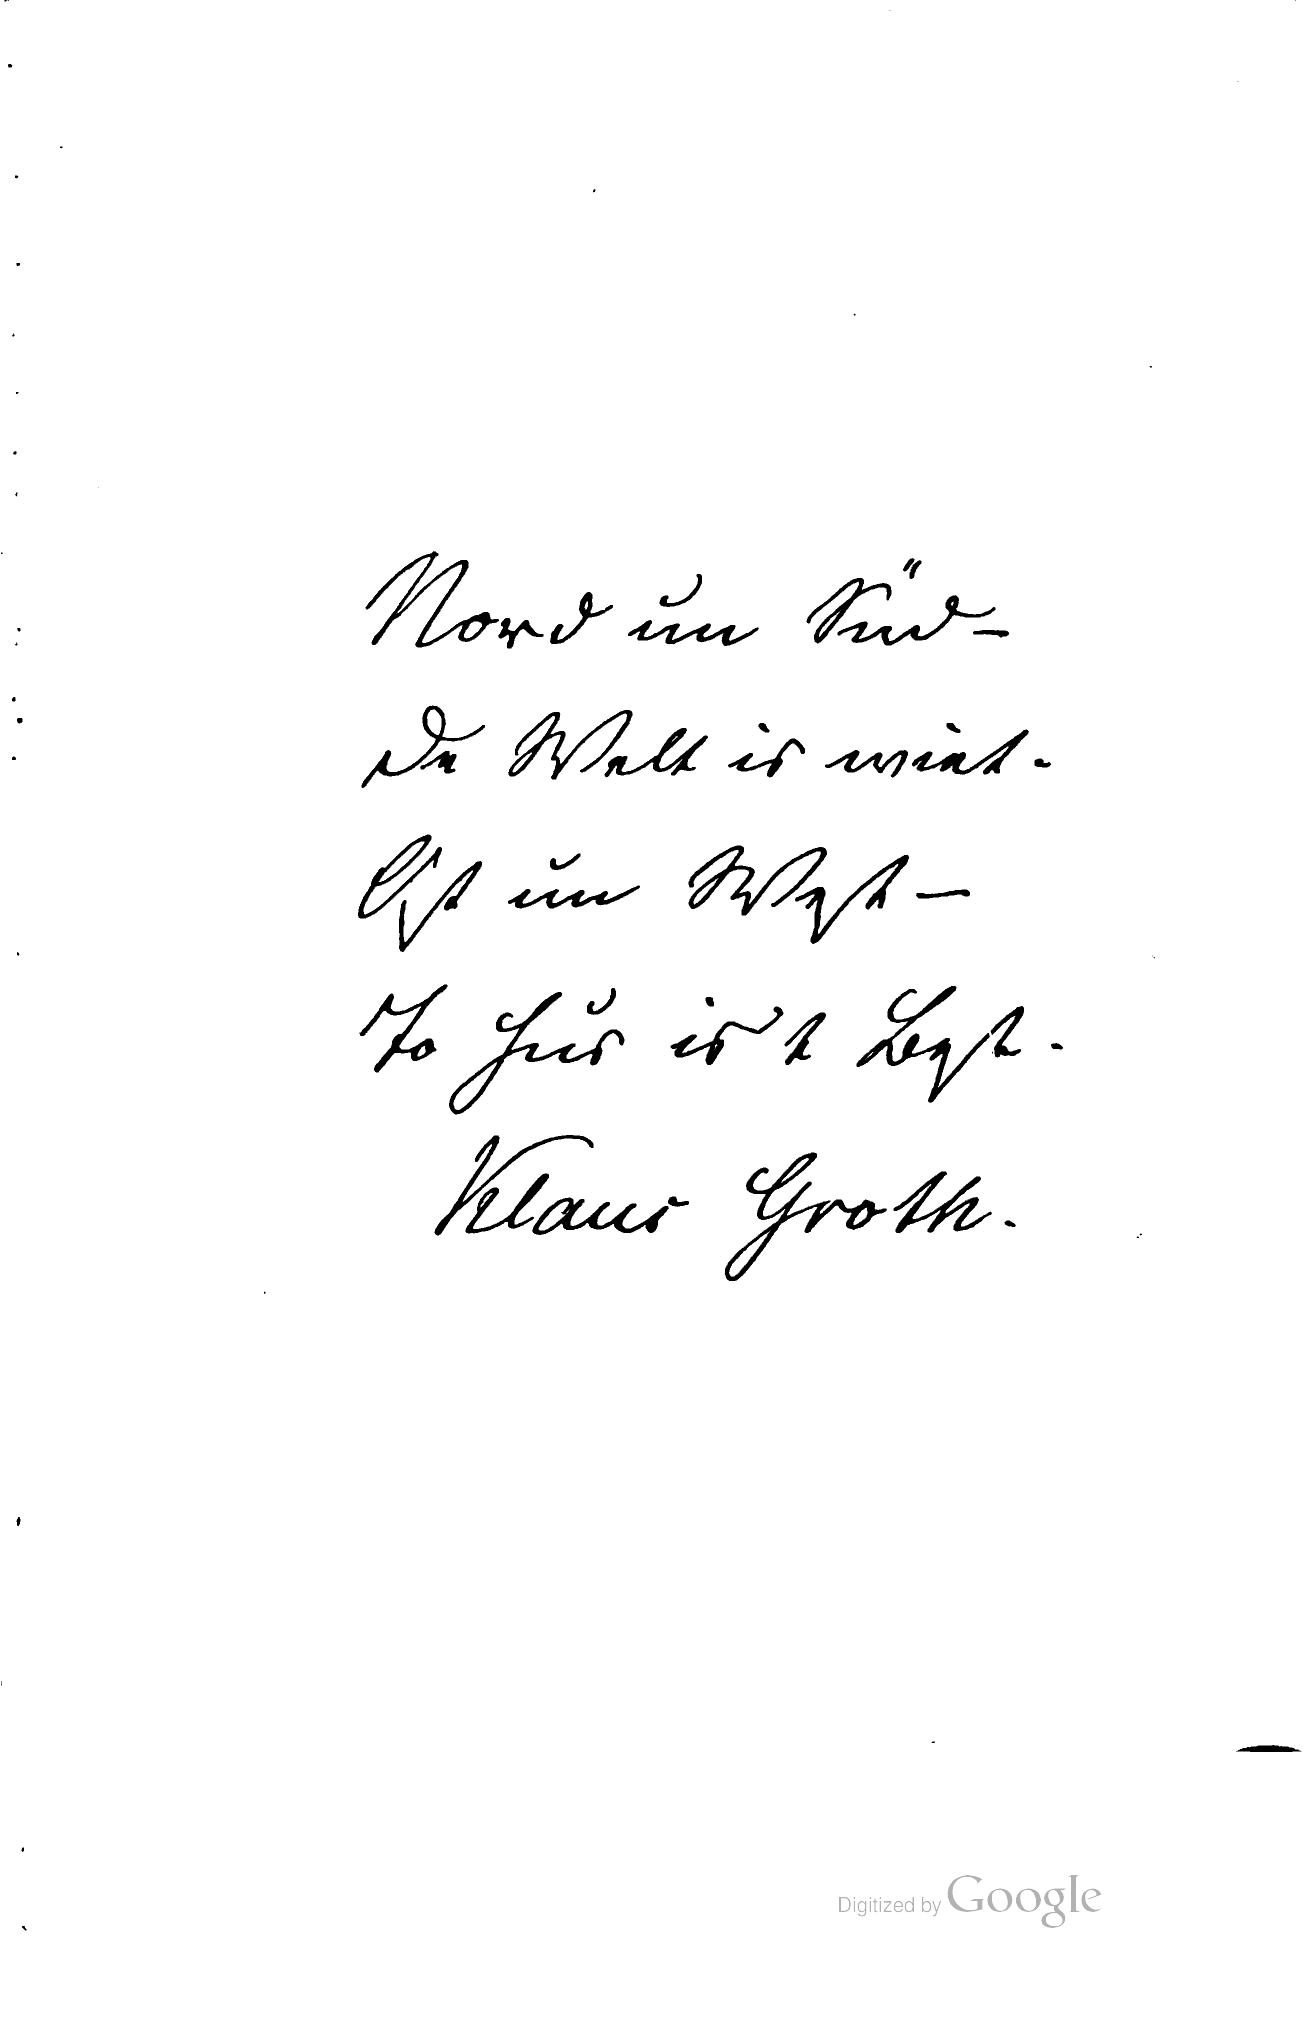 Nord un Süd –
De Welt is wiet.
Ost un West –
To Hus is't Best.
Klaus Groth.
Digitized by Google